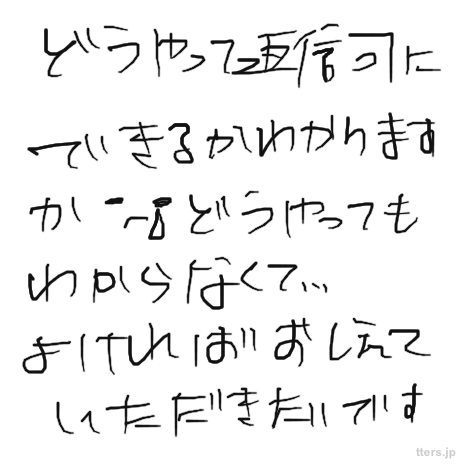 どうやって返信可に
できるかわかります
か どうやっても
わからなくて...
よければおしえて
いただきたいです
tters.jp